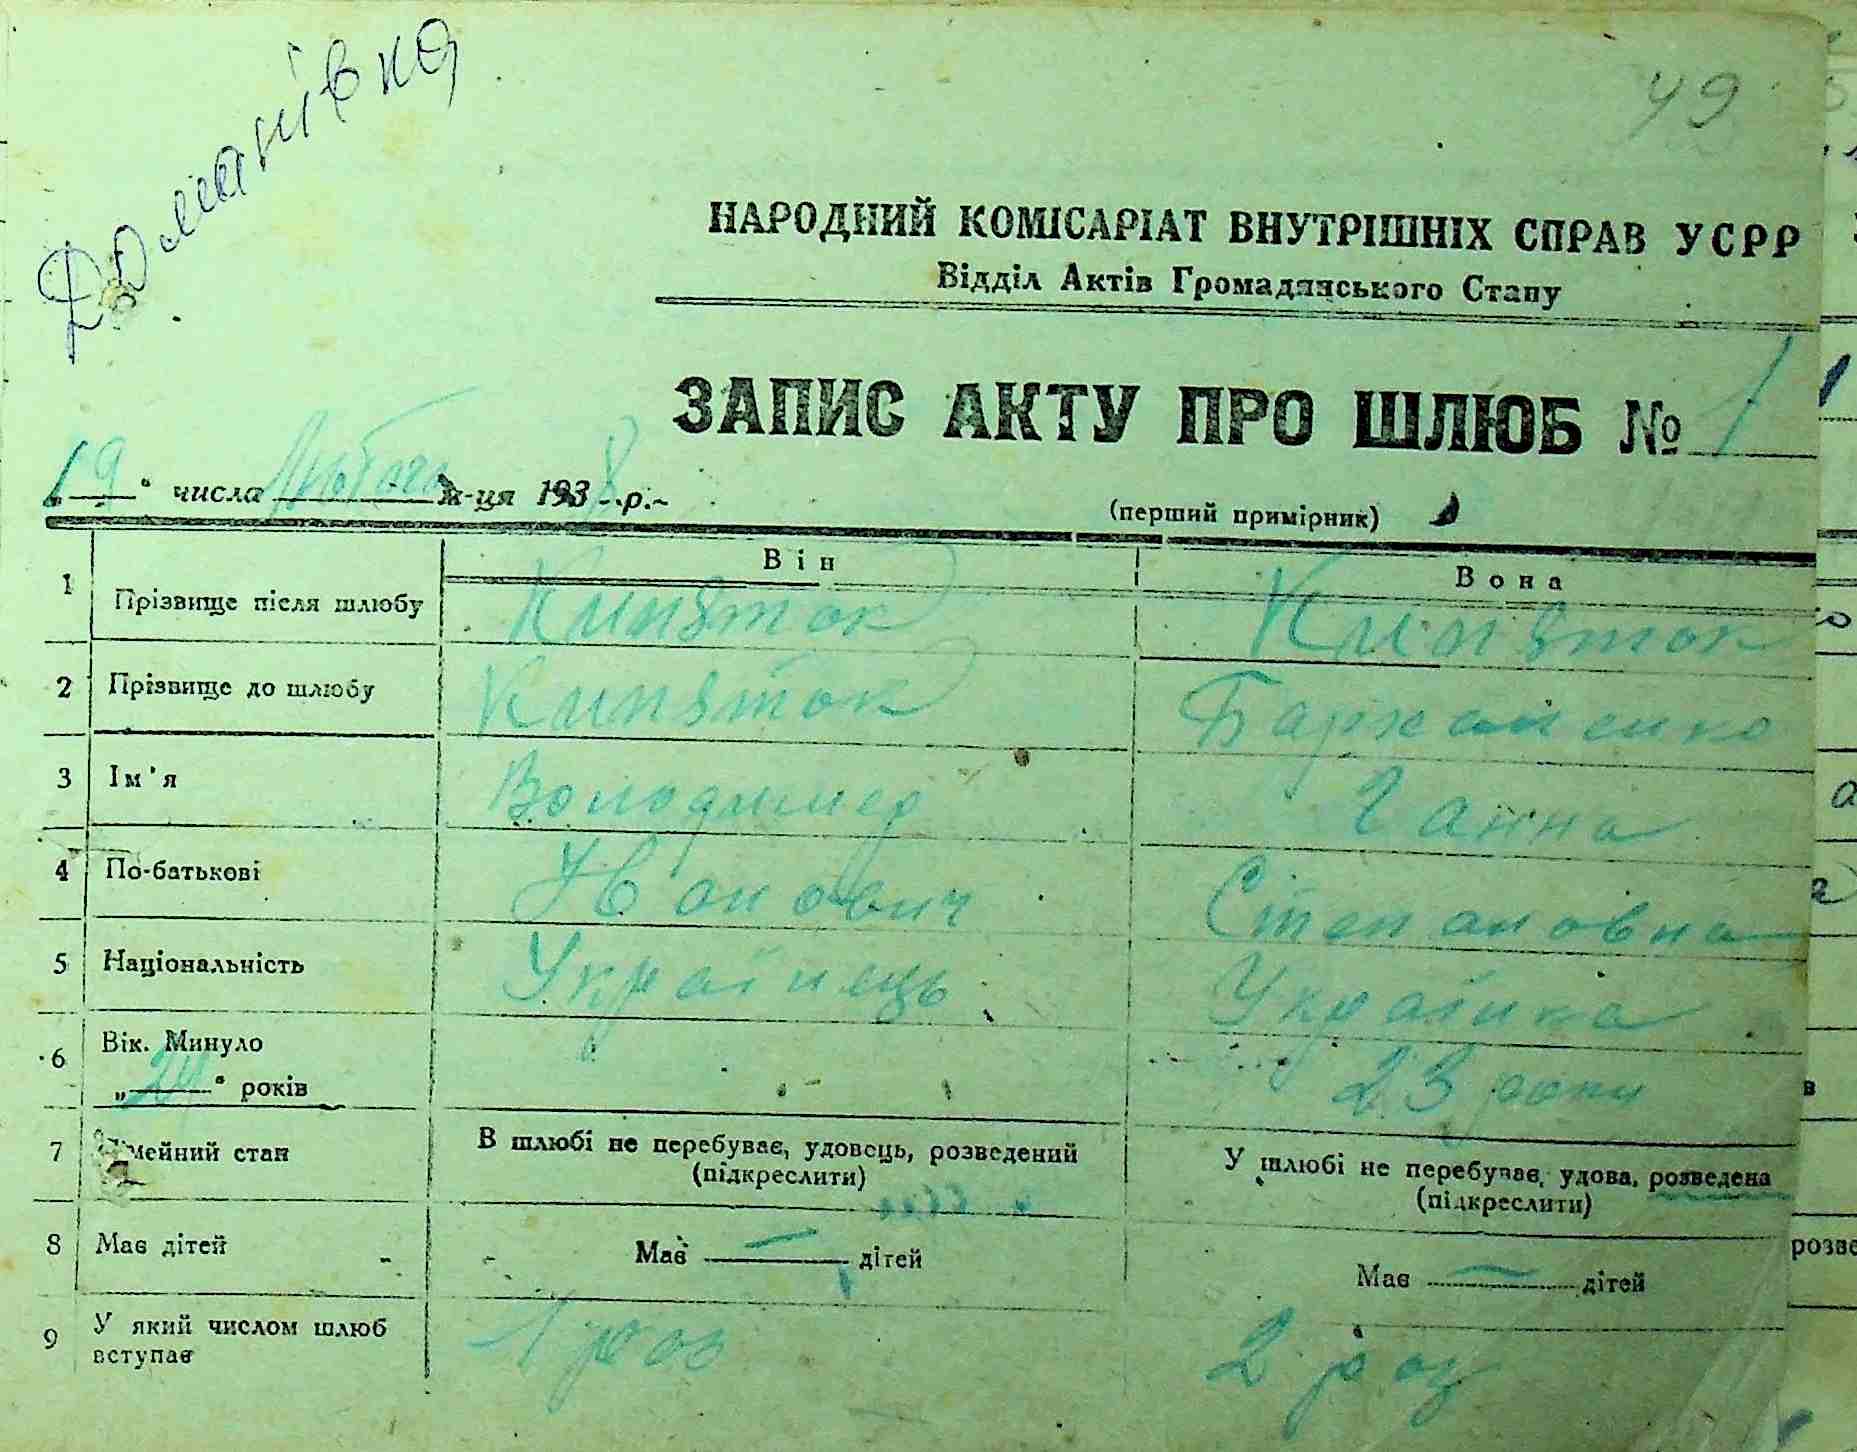 Доманівка
49
НАРОДНИЙ КОМІСАРІАТ ВНУТРІШНІХ СПРАВ УСРР
Відділ Актів Громадянського Стану
ЗАПИС АКТУ ПРО ШЛЮБ № 1
„19“ числа Лютого м-ця 1938 р.
(перший примірник)
Він Вона
1 Прізвище після шлюбу Кипяток Кипяток
2 Прізвище до шлюбу Кипяток Бархаменко
3 Ім'я Володимер Ганна
4 По-батькові Иванович Степановна
5 Національність Українець Українка
6 Вік. Минуло „24“ років 23 роки
7 мейний стан В шлюбі не перебуває, удовець, розведений (підкреслити) У шлюбі не перебуває, удова, розведена (підкреслити)
8 Має дітей Має — дітей Має — дітей
9 У який числом шлюб вступає 1 раз 2 раз